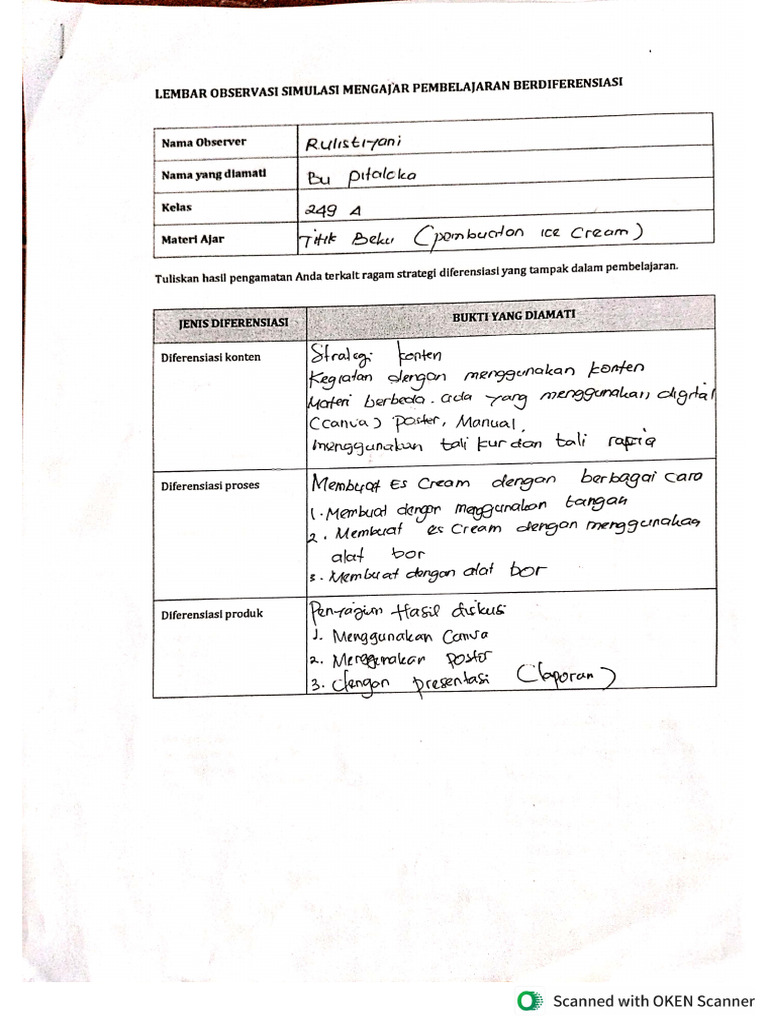 LEMBAR OBSERVASI SIMULASI MENGAJAR PEMBELAJARAN BERDIFERENSIASI
Nama Observer Rulistiyani
Nama yang diamati Bu Pitaloka
Kelas 249 A
Materi Ajar Titik Beku (pembuatan ice Cream)
Tuliskan hasil pengamatan Anda terkait ragam strategi diferensiasi yang tampak dalam pembelajaran.
JENIS DIFERENSIASI BUKTI YANG DIAMATI
Diferensiasi konten Strategi konten
Kegiatan dengan menggunakan konten
Materi berbeda. ada yang menggunakan, digital
(canva) poster, Manual,
menggunakan tali kur dan tali rapia
Diferensiasi proses Membuat Es Cream dengan berbagai cara
1. Membuat dengan menggunakan tangan
2. Membuat es Cream dengan menggunakan
alat bor
3. Membuat dengan alat bor
Diferensiasi produk Penyajian Hasil diskusi
1. Menggunakan Canva
2. Menggunakan poster
3. dengan presentasi (laporan)
Scanned with OKEN Scanner